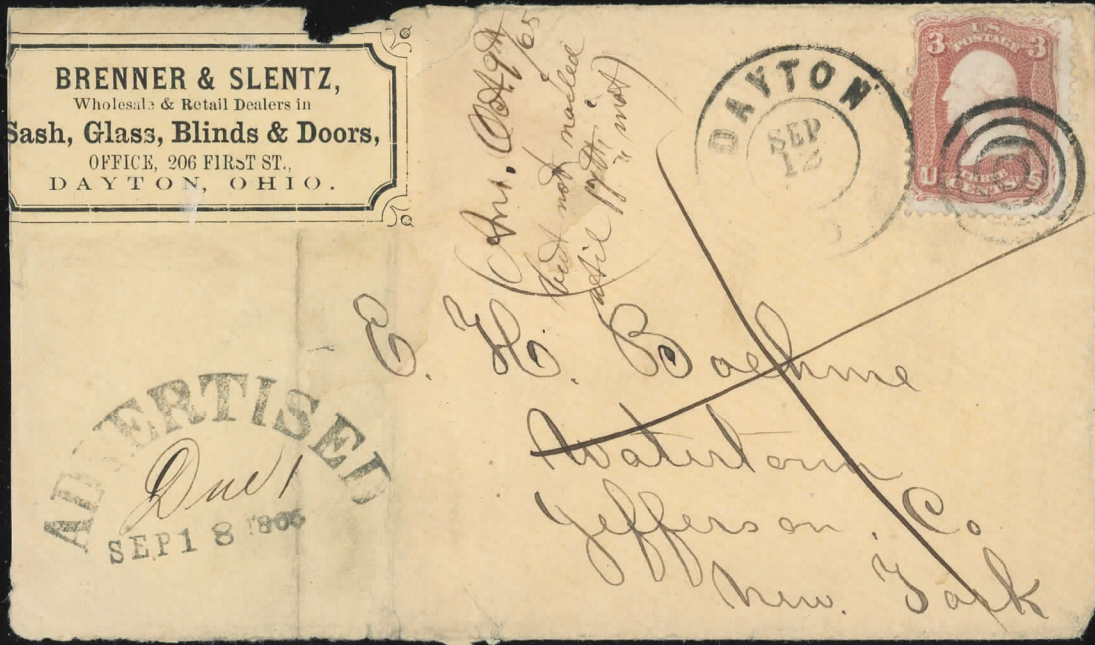 BRENNER & SLENTZ,
Wholesale & Retail Dealers in
Sash, Glass, Blinds & Doors,
OFFICE, 206 FIRST ST.,
DAYTON, OHIO.
(Ans. Oct 9th /65
but not mailed
until 17th
" inst)
DAYTON
SEP
12
3 U.S. 3
POSTAGE
U THREE S
CENTS
E. H. Boehme
Watertown
Jefferson. Co
New. York
ADVERTISED
Due 1
SEP 18 186